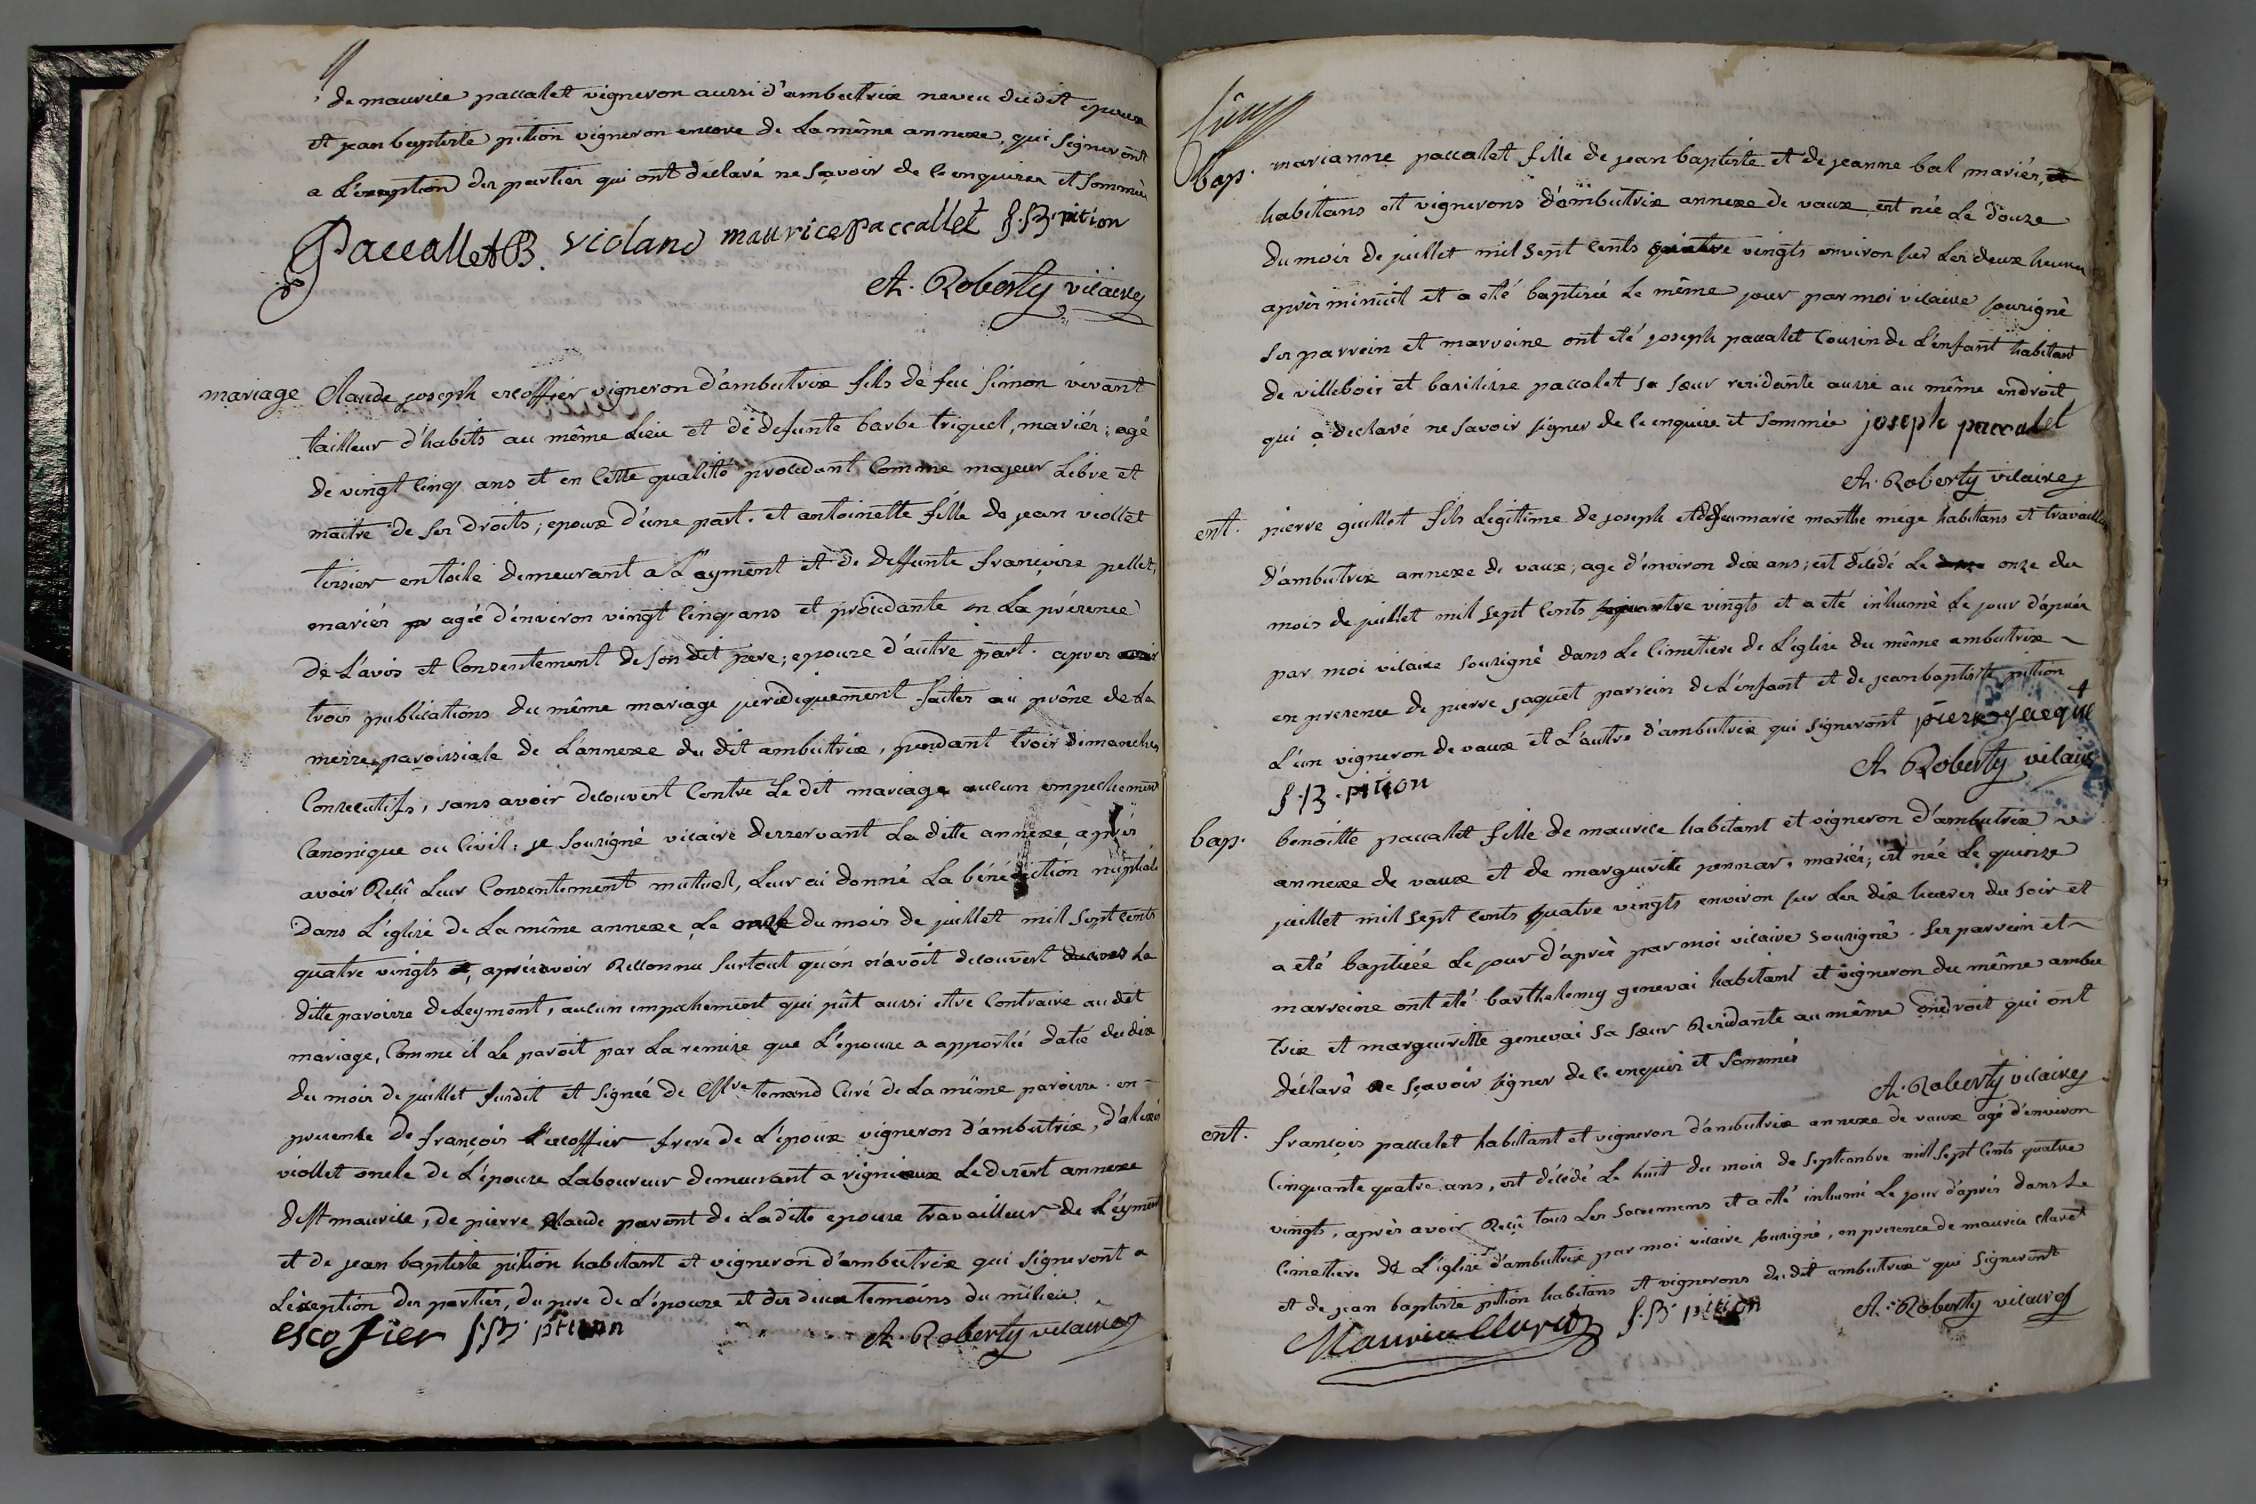 de maurice paccalet vigneron aussi d'ambutrix neveu dudit epoux
et jean baptiste pition vigneron encore de la même annexe, qui signeront
a l'exeption des parties qui ont déclaré ne sçavoir de ce enquises et sommées
Paccallet B. violand maurice paccallet J. B. pition
A. Roberty vicaire
mariage Claude joseph escoffier vigneron d'ambutrix fils de feu simon vivant
tailleur d'habits au même lieu et de defunte barbe triquet, mariés; agé
de vingt cinq ans et en cette qualité procedant comme majeur libre et
maitre de ses droits; epoux d'une part. et antoinette fille de jean viollet
tissier en toile demeurant a L'ayment et de deffunte françoise pellet,
mariés agée d'environ vingt cinq ans et procedante en la présence
de l'avis et consentement de son dit pere; epouse d'autre part. apres
trois publications du même mariage juridiquement faites au prône de la
messe paroissiale de l'annexe du dit ambutrix, pendant trois dimanches
consecutifs, sans avoir decouvert contre le dit mariage aucun empechement
canonique ou civil: je sousigné vicaire desservant la ditte annexe, après
avoir reçû leur consentement mutuel, leur ai donné la bénédiction nuptiale
dans l'église de la même annexe le onze du mois de juillet mil sept cents
quatre vingts, après avoir reconnu surtout qu'on n'avoit decouvert dans la
ditte paroisse de Leyment, aucun empechement qui pût aussi etre contraire audit
mariage, comme il le paroit par la remise que l'epouse a apportée datée du dix
du mois de juillet susdit et signée de Mre tenand curé de la même paroisse. en
presence de françois escoffier frere de l'époux vigneron d'ambutrix, d'alexis
viollet oncle de l'épouse laboureur demeurant a rignieux le desert annexe
de st maurice, de pierre claude parent de la ditte epouse travailleur de l'eyment
et de jean baptiste pition habitant et vigneron d'ambutrix qui signeront a
l'exeption des parties, du pere de l'epouse et des deux temoins du milieu
escofier J. B. pition A. Roberty vicaire
bap. marianne paccalet fille de jean baptiste et de jeanne bal, mariés,
habitans et vignerons d'ambutrix annexe de vaux, est née le douze
du mois de juillet mil sept cents quatre vingts environ sur les deux heures
après minuit et a eté baptisée le même jour par moi vicaire sousigné
ses parrein et marreine ont eté joseph paccalet cousin de l'enfant habitant
de villebois et basilisse paccalet sa sœur residante aussi au même endroit
qui a declaré ne savoir signer de ce enquise et sommée joseph paccalet
A. Roberty vicaire
ent. pierre guillot fils legitime de joseph et de feu marie marthe mége habitans et travailleurs
d'ambutrix annexe de vaux; agé d'environ dix ans; est décédé le onze du
mois de juillet mil sept cents quatre vingts et a eté inhumé le jour d'après
par moi vicaire sousigné dans le cimetiere de l'église du même ambutrix
en presence de pierre jaquet parrein de l'enfant et de jean baptiste pition
l'un vigneron de vaux et l'autre d'ambutrix qui signeront pierre jacque
J. B. pition A. Roberty vicaire
bap. benoitte paccalet fille de maurice habitant et vigneron d'ambutrix
annexe de vaux et de marguerite ponnar, mariés; est née le quinze
juillet mil sept cents quatre vingts environ sur les dix heures du soir et
a eté baptisée le jour d'après par moi vicaire sousigné. ses parrein et
marreine ont eté barthelemy genevai habitant et vigneron du même ambu
trix et marguerite genevai sa sœur residante au même endroit qui ont
déclaré ne sçavoir signer de ce enquis et sommés
A. Roberty vicaire
ent. françois paccalet habitant et vigneron d'ambutrix annexe de vaux agé d'environ
cinquante quatre ans, est décédé le huit du mois de septembre mil sept cents quatre
vingts, après avoir reçû tous les sacremens et a eté inhumé le jour d'après dans le
cimetiere de l'église d'ambutrix par moi vicaire sousigné, en presence de maurice claret
et de jean baptiste pition habitans et vignerons du dit ambutrix qui signeront
Maurice Claret J. B. pition A. Roberty vicaire